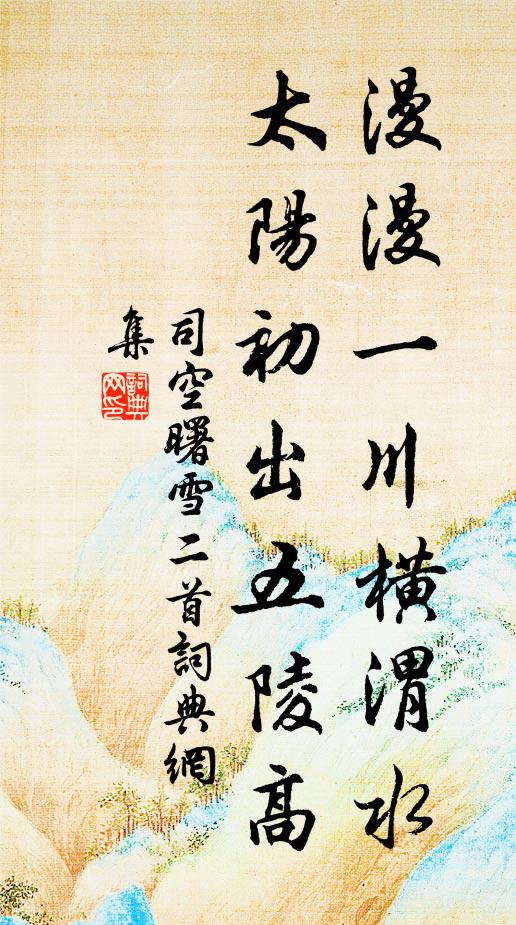 漫漫一川橫渭水
太陽初出五陵高
司空曙雪二首詞典網
集
詞典
网印